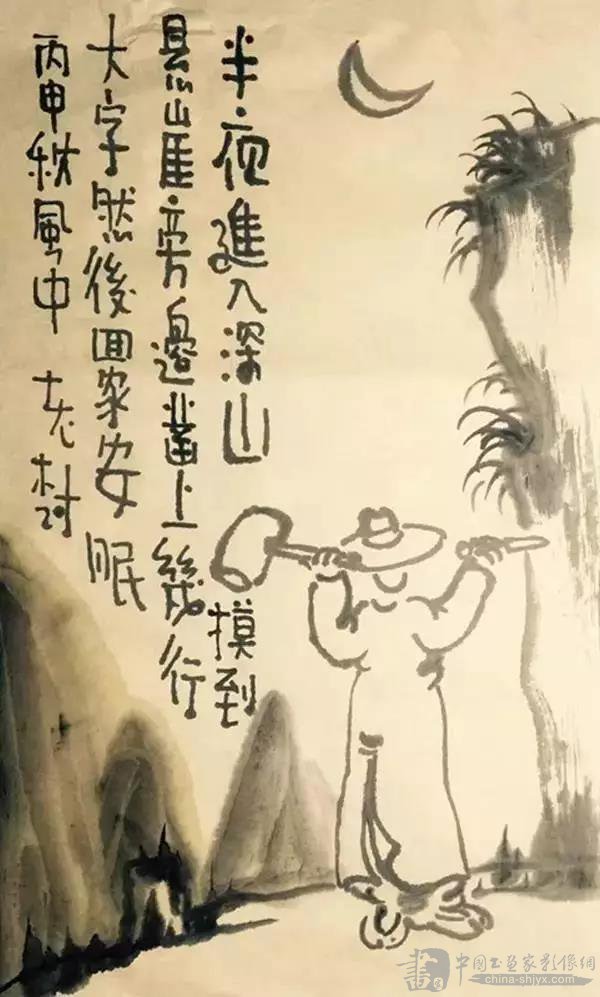 半夜進入深山 摸到
懸崖旁邊凿上幾行
大字然後回家安眠
丙申秋風中 老樹
畫
中国书画家影像網
china-shjyx.com